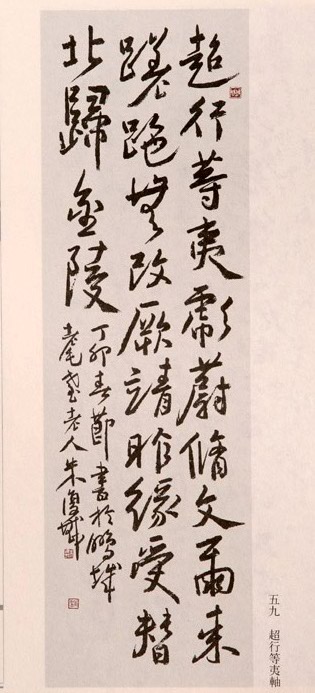 超行等夷彪蔚脩文爾來
蹉跎無改厥靖昨緣受替
北歸金陵
丁卯春節書於鵬城
耄耋老人朱復戡
五九　超行等夷軸